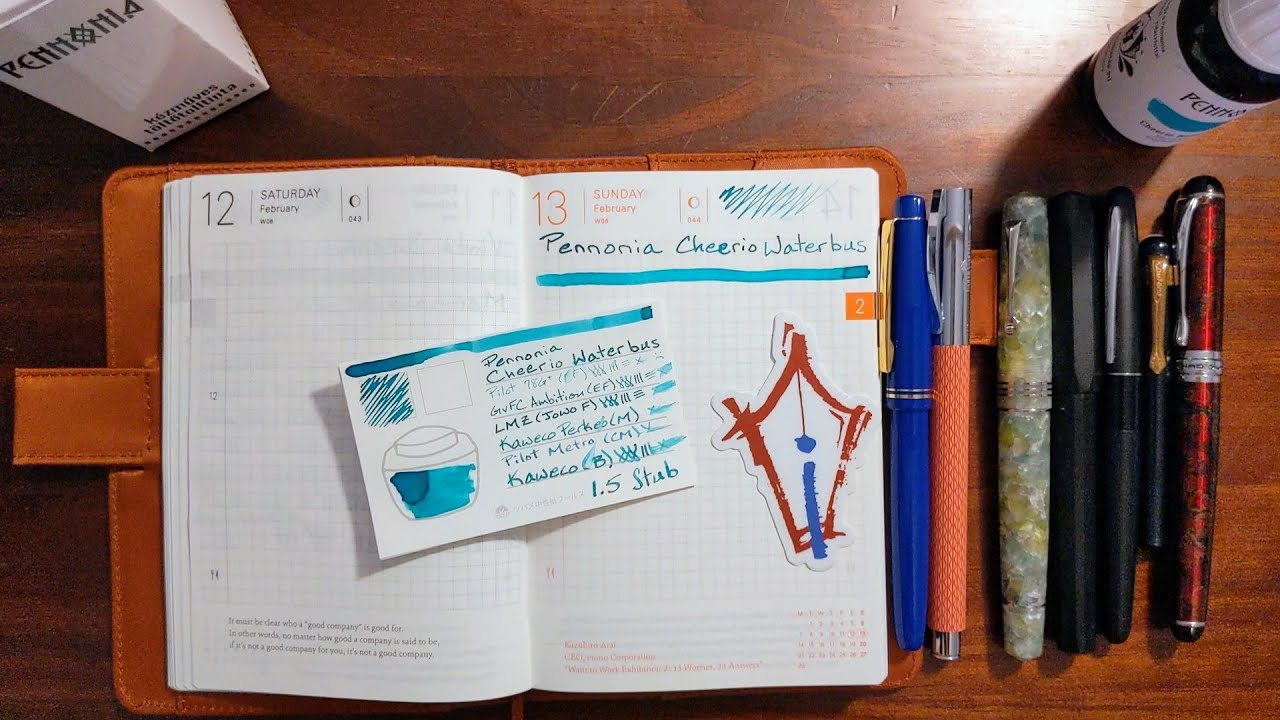 PENNONIA
kézműves
töltőtolltinta
PENNONIA
12
SATURDAY
February
W06
043
13
SUNDAY
February
W06
044
14
Pennonia Cheerio Waterbus
2
Pennonia
Cheerio Waterbus
Pilot 78G+ (EF)
GvFC Ambition (EF)
LMZ (Jowo F)
Kaweco Perkeo (M)
Pilot Metro (CM)
Kaweco (B)
1.5 Stub
12
It must be clear who a "good company" is good for.
In other words, no matter how good a company is said to be,
if it's not a good company for you, it's not a good company.
Kazuhiro Arai
CEO, eumo Corporation
"Want to Work Exhibition 2: 33 Worries, 33 Answers"
M T W T F S S
1 2 3 4 5 6
7 8 9 10 11 12 13
14 15 16 17 18 19 20
21 22 23 24 25 26 27
28